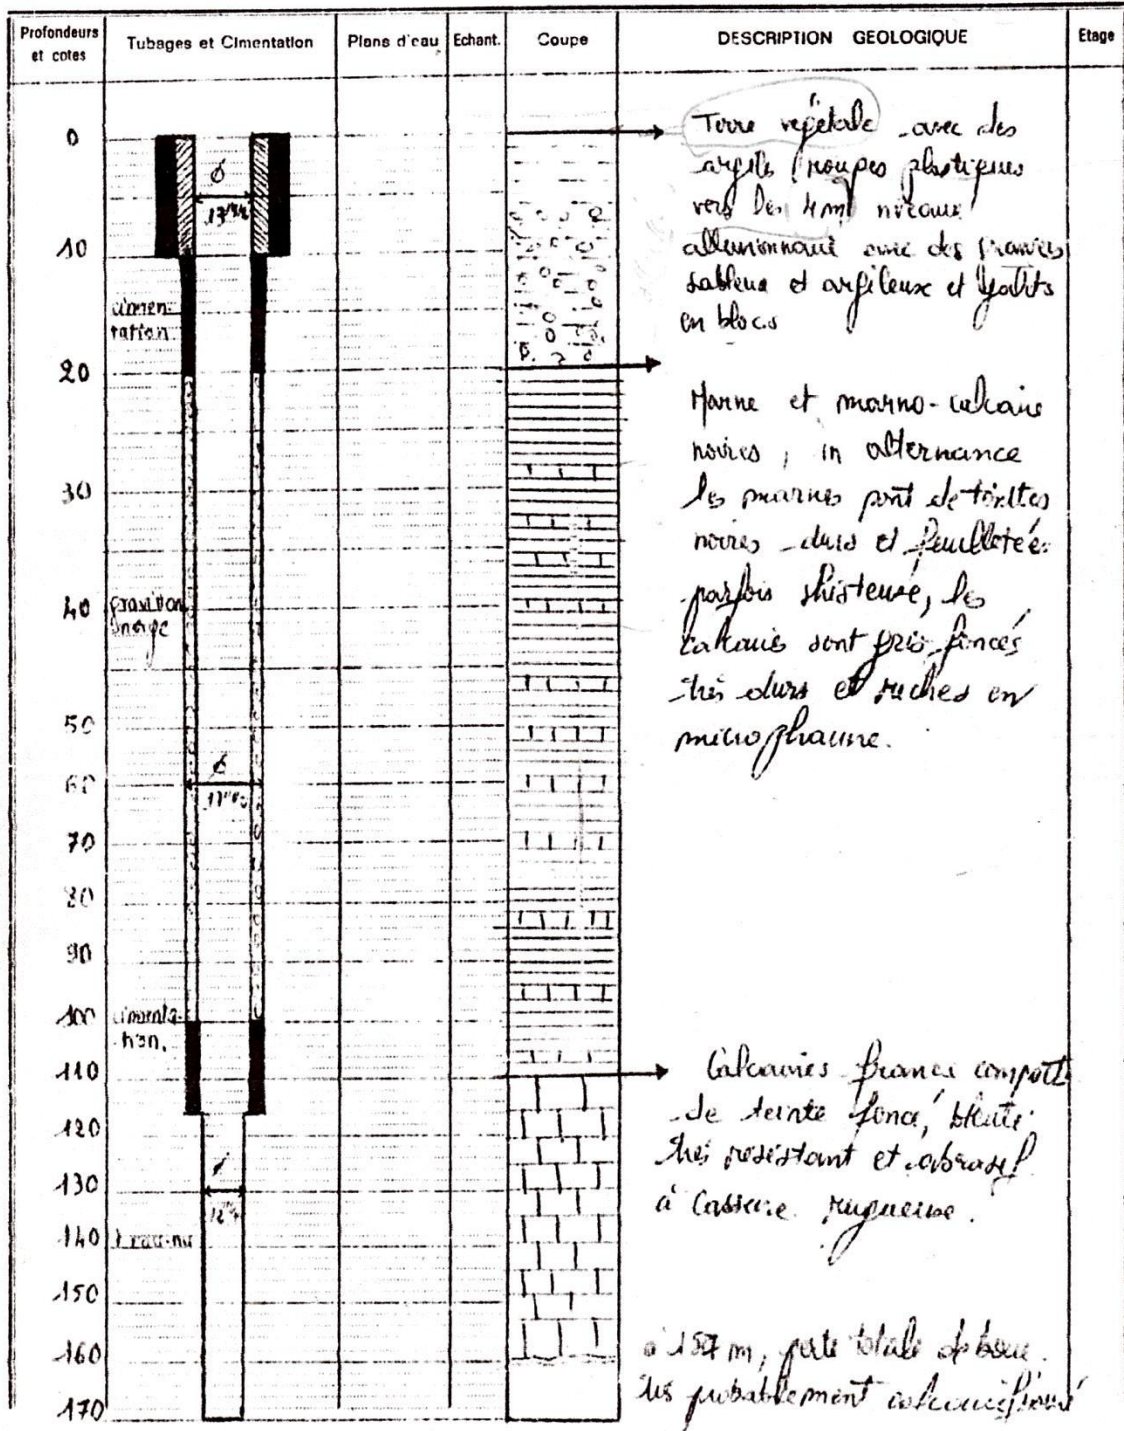 Profondeurs et cotes
Tubages et Cimentation
Plans d'eau
Echant.
Coupe
DESCRIPTION GEOLOGIQUE
Etage
0
10
20
30
40
50
60
70
80
90
100
110
120
130
140
150
160
170
Ø
cimen-
tation
Ø
cimenta-
tion.
Terre végétale avec des
argiles rouges plastiques
vers les 4m niveaux
avec des
sableux et argileux et galets
en blocs
Marne et marno-calcaire
noires, en alternance
les marnes sont de teintes
noires durs et feuilletée
parfois shisteuse, les
calcaires sont gris foncés
très durs et riches en
microphaune.
Calcaires francs
de teinte foncé,
très resistant et abrasif
à cassure rugueuse.
à 157 m, perte totale de boue.
très probablement